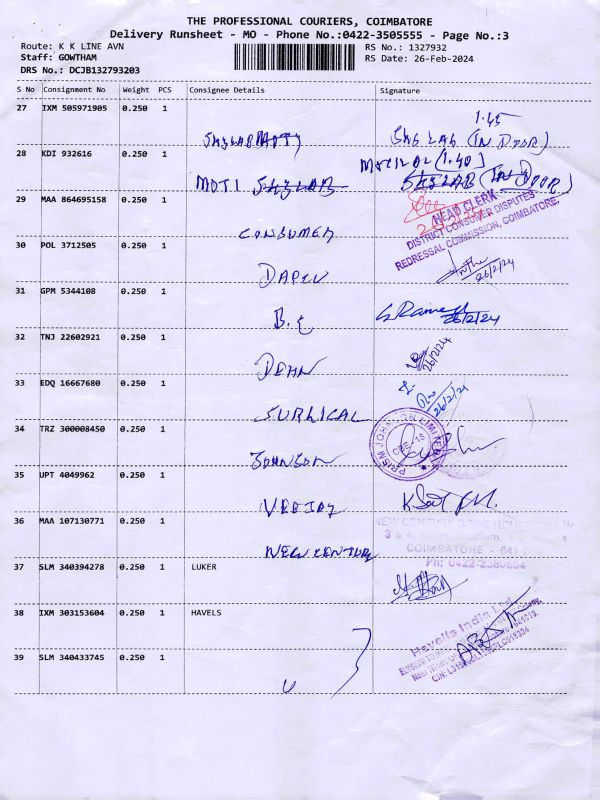 THE PROFESSIONAL COURIERS, COIMBATORE
Delivery Runsheet - MO - Phone No.:0422-3505555 - Page No.:3
Route: K K LINE AVN
RS No.: 1327932
Staff: GOWTHAM
RS Date: 26-Feb-2024
DRS No.: DCJB132793203
S No Consignment No Weight PCS Consignee Details Signature
27 IXM 505971905 0.250 1
1.45
SKYLAB (IN DOOR)
28 KDI 932616 0.250 1
MOTILAL (1.40)
MOTI SKYLAB SKYLAB (IN DOOR)
29 MAA 864695158 0.250 1
HEAD CLERK
DISTRICT CONSUMER DISPUTES
REDRESSAL COMMISSION, COIMBATORE.
CONSUMER
30 POL 3712505 0.250 1
26/2/24
31 GPM 5344108 0.250 1
B.E
S Ramesh
26/2/24
32 TNJ 22602921 0.250 1
26/2/24
33 EDQ 16667680 0.250 1
26/2/24
SURGICAL
34 TRZ 300008450 0.250 1
PRISM JOHNSON LIMITED
JOHNSON
35 UPT 4049962 0.250 1
VEEJAY
36 MAA 107130771 0.250 1
NEW CENTURY
NEW CENTURY BOOK HOUSE
COIMBATORE - 641
Ph: 0422-2380554
37 SLM 340394278 0.250 1 LUKER
38 IXM 303153604 0.250 1 HAVELS
Havells India Ltd.
39 SLM 340433745 0.250 1